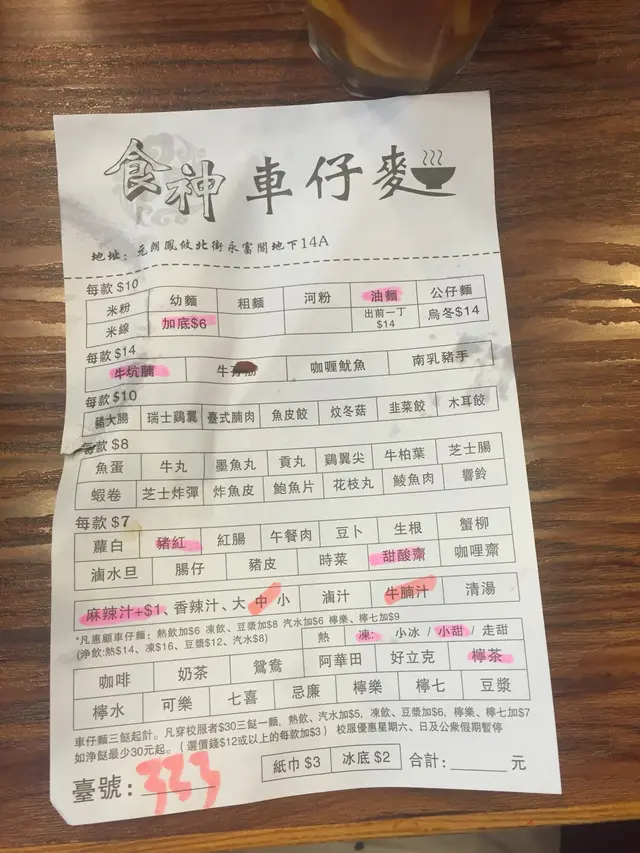 食神 車仔麥
地址：元朗鳳攸北街永富閣地下14A
每款 $10
米粉 幼麵 粗麵 河粉 油麵 公仔麵
米線 加底$6 出前一丁$14 烏冬$14
每款 $14
牛坑腩 牛 咖喱魷魚 南乳豬手
每款 $10
豬大腸 瑞士鷄翼 臺式腩肉 魚皮餃 炆冬菇 韭菜餃 木耳餃
每款 $8
魚蛋 牛丸 墨魚丸 貢丸 鷄翼尖 牛柏葉 芝士腸
蝦卷 芝士炸彈 炸魚皮 鮑魚片 花枝丸 鯪魚肉 響鈴
每款 $7
蘿白 豬紅 紅腸 午餐肉 豆卜 生根 蟹柳
滷水旦 腸仔 豬皮 時菜 甜酸齋 咖哩齋
麻辣汁+$1、香辣汁、大 中 小 滷汁 牛腩汁 清湯
*凡惠顧車仔麵：熱飲加$6 凍飲、豆漿加$8 汽水加$6 檸樂、檸七加$9
(淨飲:熱$14、凍$16、豆漿$12、汽水$8)
熱 凍: 小冰 / 小甜 / 走甜
咖啡 奶茶 鴛鴦 阿華田 好立克 檸茶
檸水 可樂 七喜 忌廉 檸樂 檸七 豆漿
車仔麵三餸起計。凡穿校服者$30三餸一麵，熱飲、汽水加$5，凍飲、豆漿加$6，檸樂、檸七加$7
如淨餸最少30元起。( 選價錢$12或以上的每款加$3 ) 校服優惠星期六、日及公衆假期暫停
紙巾 $3 冰底 $2 合計: 元
臺號: 333